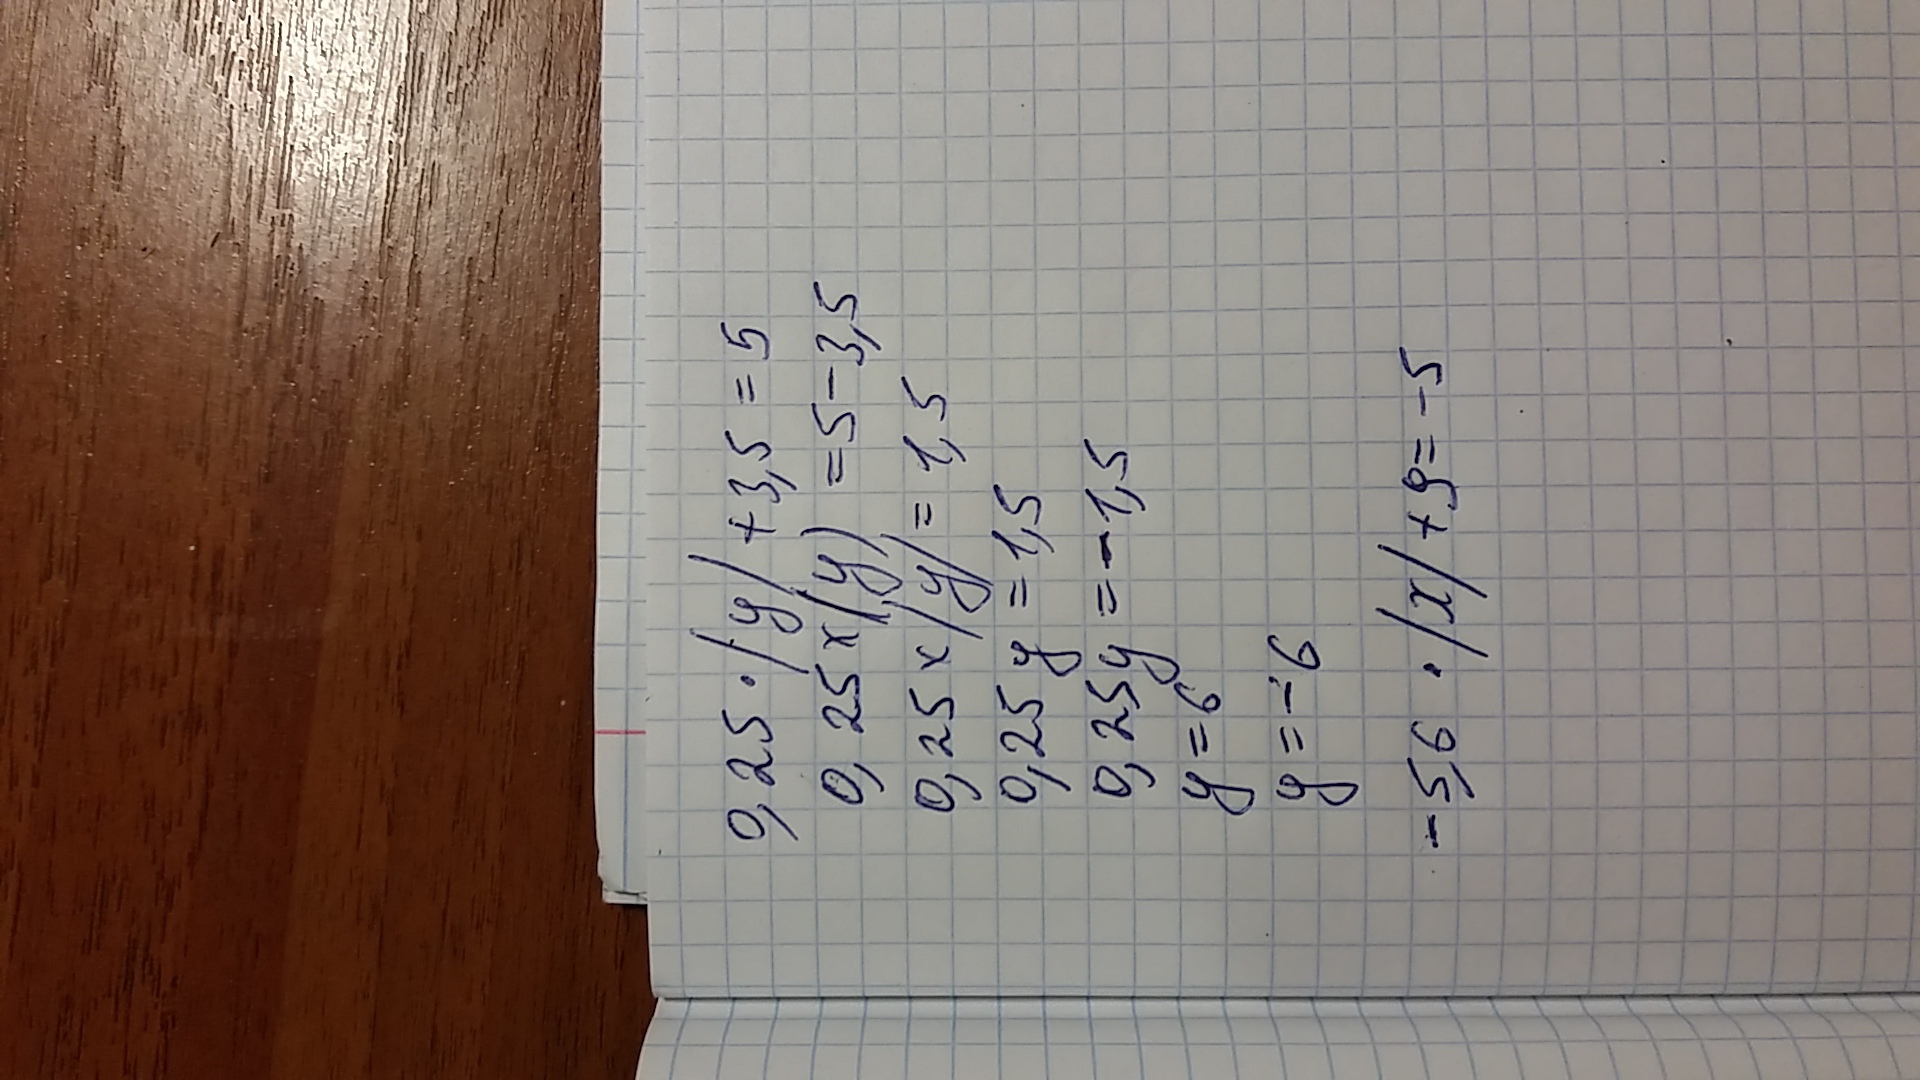 0,25 · |y| + 3,5 = 5
0,25 x |y| = 5 - 3,5
0,25 x |y| = 1,5
0,25 y = 1,5
0,25 y = - 1,5
y = 6
y = - 6
- 5,6 · |x| + 9 = - 5